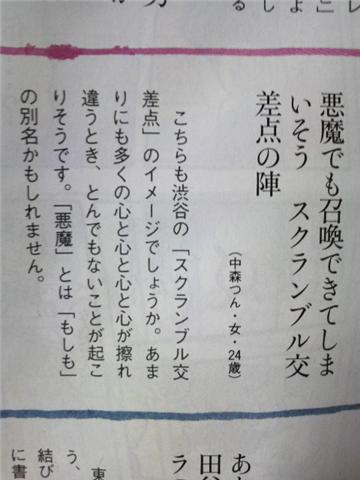 悪魔でも召喚できてしま
いそう　スクランブル交
差点の陣
（中森つん・女・24歳）
こちらも渋谷の「スクランブル交
差点」のイメージでしょうか。あま
りにも多くの心と心と心と心が擦れ
違うとき、とんでもないことが起こ
りそうです。「悪魔」とは「もしも」
の別名かもしれません。
あ
田谷
ラの
東
う、
結び
に書